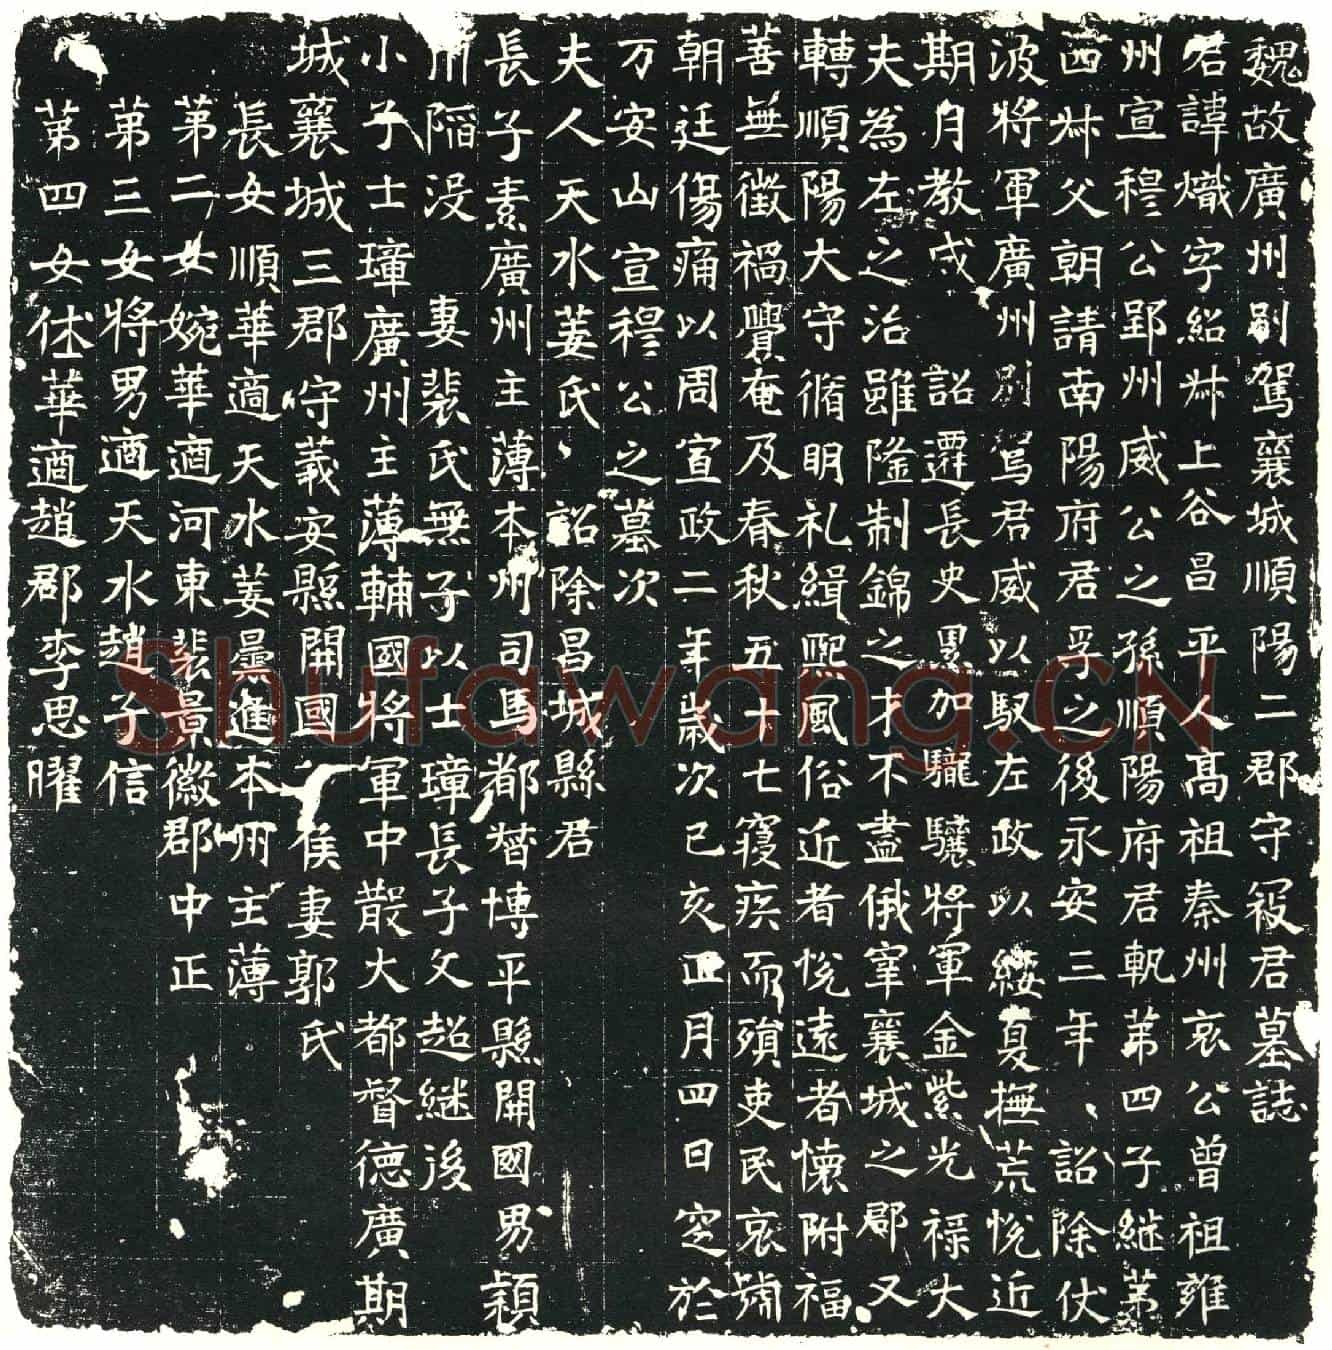 魏故廣州別駕襄城順陽二郡守寇君墓誌
君諱熾字紹叔上谷昌平人高祖秦州哀公曾祖雍
州宣穆公郢州威公之孫順陽府君軌第四子継第
西叔父朝請南陽府君孚之後永安三年、詔除伏
波將軍廣州別駕君威以馭左政以綏夏撫荒悅近
期月教成 詔遷長史累加驍驤將軍金紫光禄大
夫為左之治雖隆制錦之才不盡俄宰襄城之郡又
轉順陽大守脩明礼緝熙風俗近者悅遠者懐附福
善無徵禍舋奄及春秋五十七寢疾而殞吏民哀號
朝廷傷痛以周宣政二年歲次己亥正月四日空於
万安山宣穆公之墓次
夫人天水姜氏、詔除昌城縣君
長子素廣州主薄本州司馬都督博平縣開國男潁
川陷沒 妻裴氏無子以士璋長子文超継後
小子士璋廣州主薄輔國將軍中散大都督德廣期
城襄城三郡守義安縣開國 侯妻郭氏
長女順華適天水姜曇進本州主薄
第二女婉華適河東裴景徽郡中正
第三女將男適天水趙子信
第四女休華適趙郡李思曜
Shufawang.CN